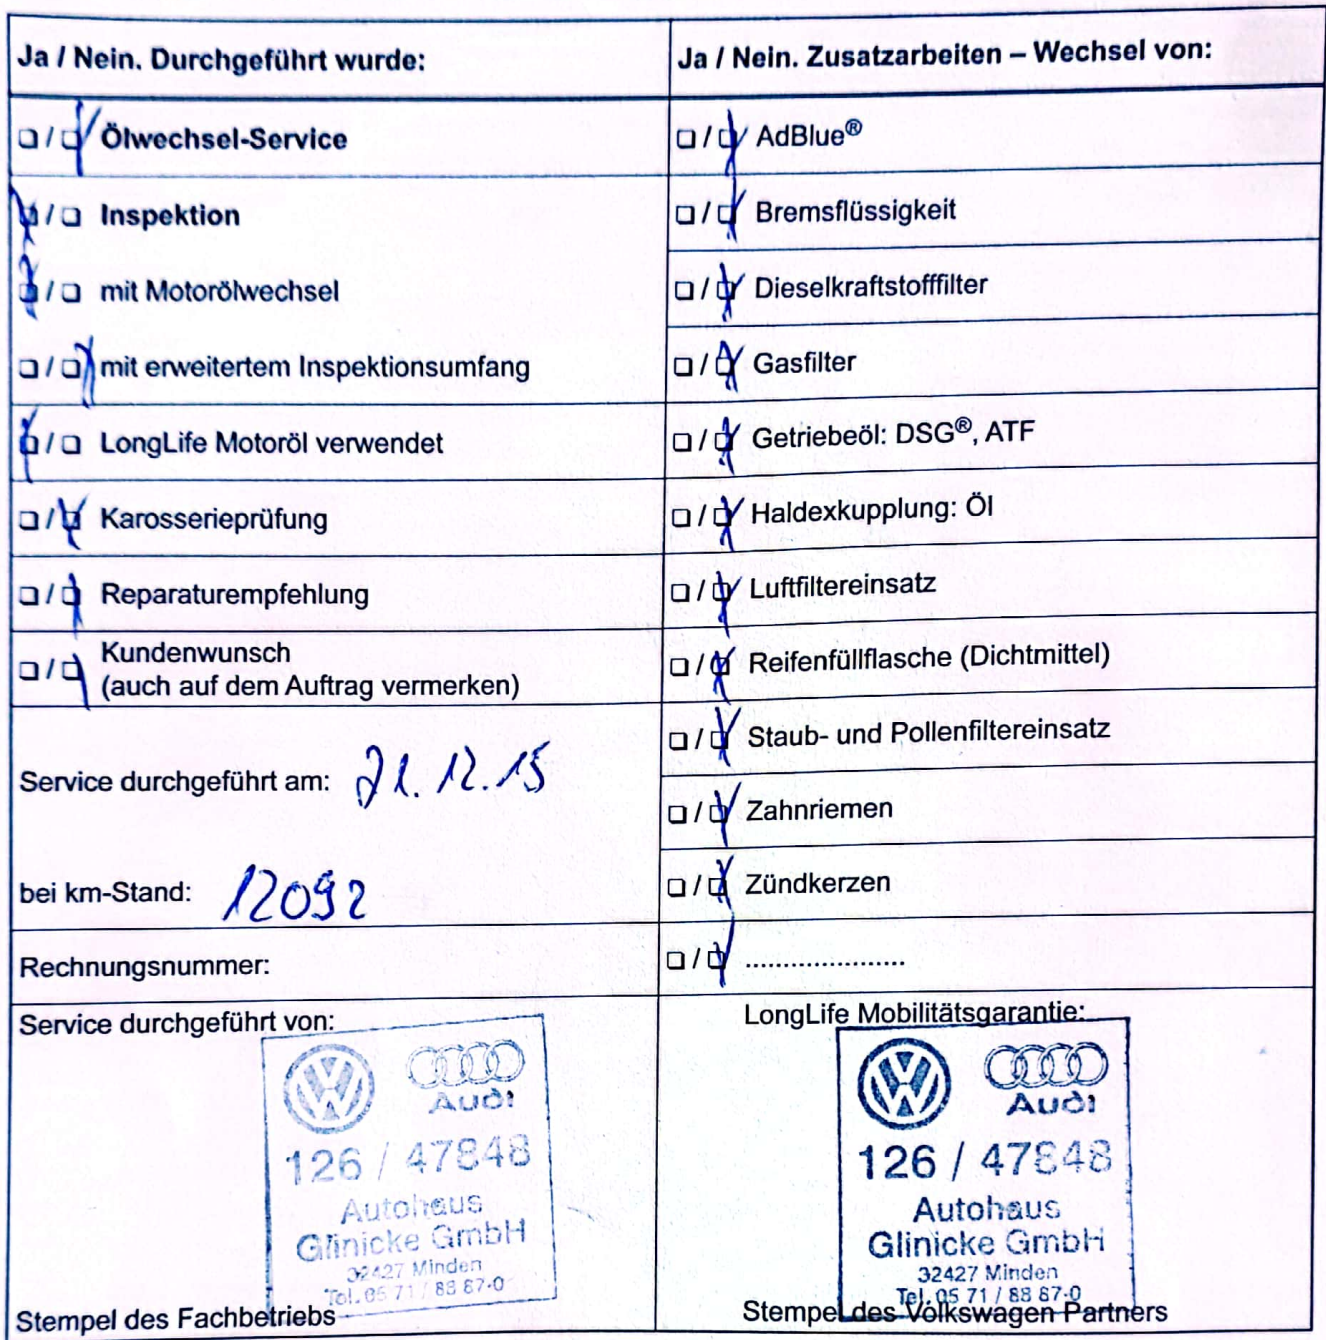 Ja / Nein. Durchgeführt wurde:
❑ / ❑ Ölwechsel-Service
❑ / ❑ Inspektion
❑ / ❑ mit Motorölwechsel
❑ / ❑ mit erweitertem Inspektionsumfang
❑ / ❑ LongLife Motoröl verwendet
❑ / ❑ Karosserieprüfung
❑ / ❑ Reparaturempfehlung
❑ / ❑ Kundenwunsch
(auch auf dem Auftrag vermerken)
Service durchgeführt am: 21.12.15
bei km-Stand: 12092
Rechnungsnummer:
Service durchgeführt von:
Audi
126 / 47848
Autohaus
Glinicke GmbH
32427 Minden
Tel. 05 71 / 88 87-0
Stempel des Fachbetriebs
Ja / Nein. Zusatzarbeiten – Wechsel von:
❑ / ❑ AdBlue®
❑ / ❑ Bremsflüssigkeit
❑ / ❑ Dieselkraftstofffilter
❑ / ❑ Gasfilter
❑ / ❑ Getriebeöl: DSG®, ATF
❑ / ❑ Haldexkupplung: Öl
❑ / ❑ Luftfiltereinsatz
❑ / ❑ Reifenfüllflasche (Dichtmittel)
❑ / ❑ Staub- und Pollenfiltereinsatz
❑ / ❑ Zahnriemen
❑ / ❑ Zündkerzen
❑ / ❑ ......................
LongLife Mobilitätsgarantie:
Audi
126 / 47848
Autohaus
Glinicke GmbH
32427 Minden
Tel. 05 71 / 88 87-0
Stempel des Volkswagen Partners